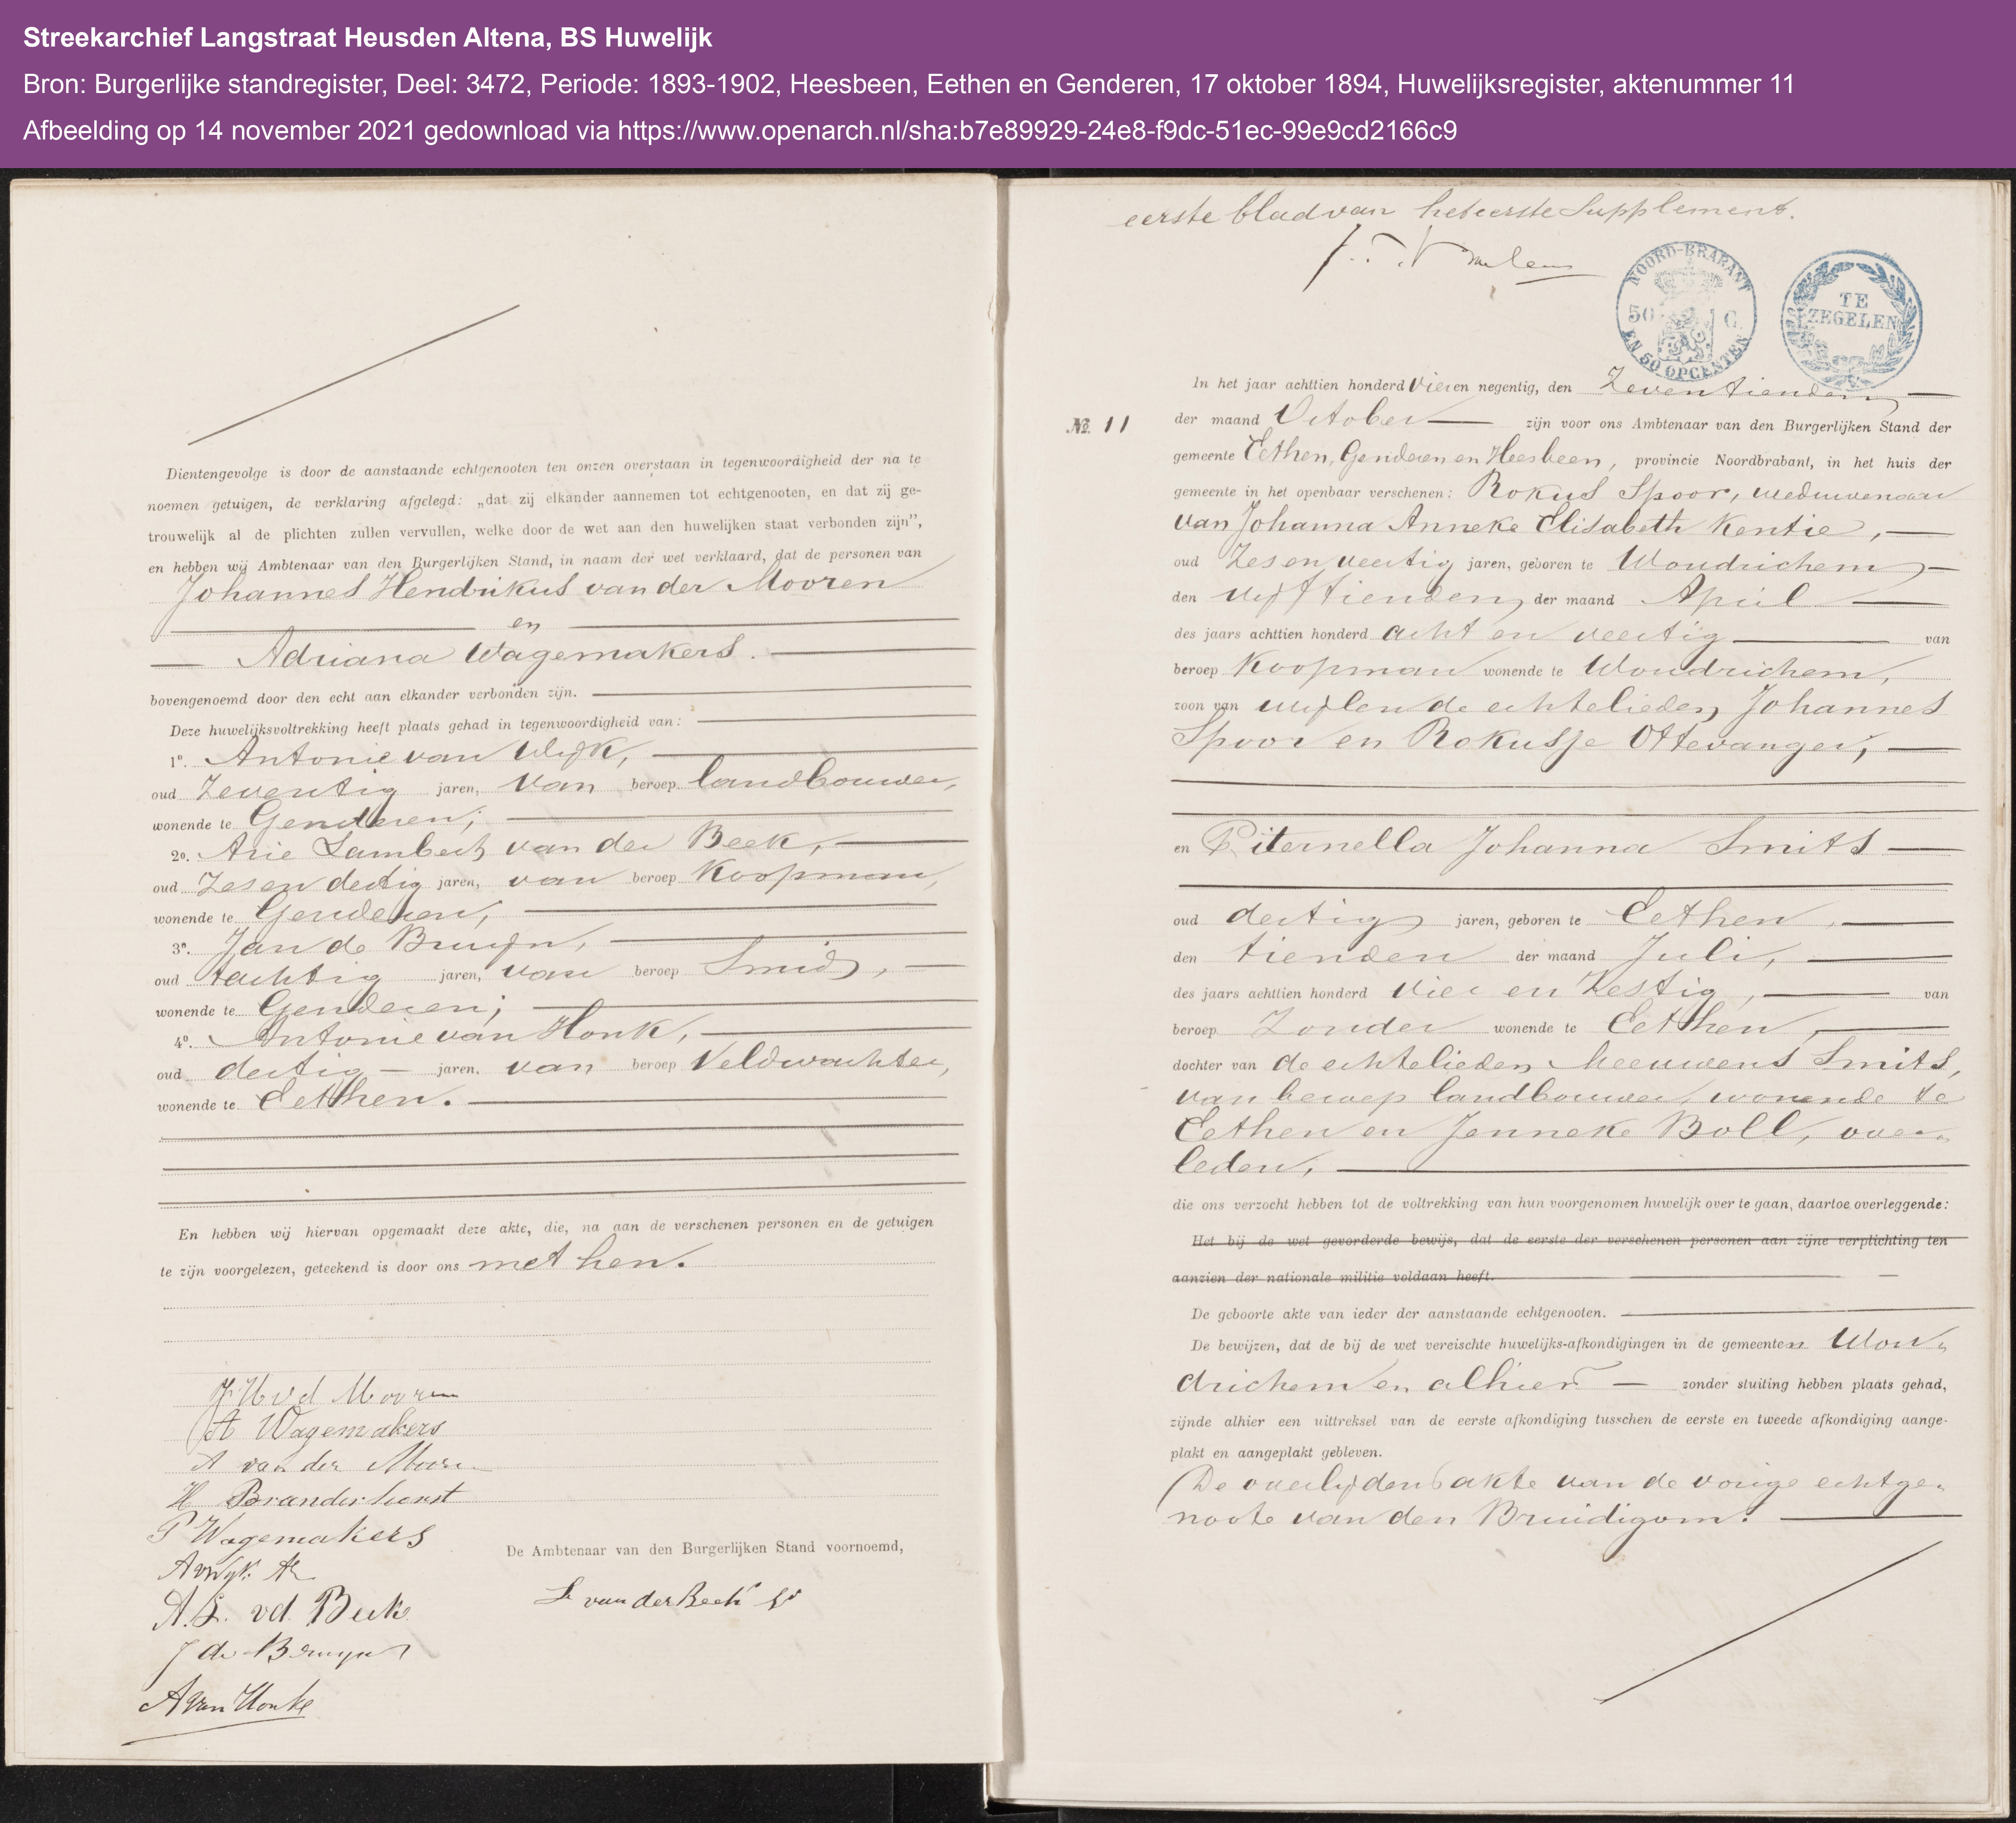 Streekarchief Langstraat Heusden Altena, BS Huwelijk
Bron: Burgerlijke standregister, Deel: 3472, Periode: 1893-1902, Heesbeen, Eethen en Genderen, 17 oktober 1894, Huwelijksregister, aktenummer 11
Afbeelding op 14 november 2021 gedownload via https://www.openarch.nl/sha:b7e89929-24e8-f9dc-51ec-99e9cd2166c9
Dientengevolge is door de aanstaande echtgenooten ten onzen overstaan in tegenwoordigheid der na te
noemen getuigen, de verklaring afgelegd: „dat zij elkander aannemen tot echtgenooten, en dat zij ge-
trouwelijk al de plichten zullen vervullen, welke door de wet aan den huwelijken staat verbonden zijn”,
en hebben wij Ambtenaar van den Burgerlijken Stand, in naam der wet verklaard, dat de personen van
Johannes Hendrikus van der Mooren
en
Adriana Wagemakers.
bovengenoemd door den echt aan elkander verbonden zijn.
Deze huwelijksvoltrekking heeft plaats gehad in tegenwoordigheid van:
1o. Antonie van Wijk,
oud Zeventig jaren, van beroep landbouwer,
wonende te Genderen;
2o. Arie Lambert van der Beek,
oud Zes en dertig jaren, van beroep Koopman,
wonende te Genderen;
3o. Jan de Bruijn,
oud tachtig jaren, van beroep Smid,
wonende te Genderen;
4o. Antonie van Honk,
oud dertig jaren, van beroep Veldwachter,
wonende te Eethen.
En hebben wij hiervan opgemaakt deze akte, die, na aan de verschenen personen en de getuigen
te zijn voorgelezen, geteekend is door ons met hen.
J H v d Mooren
A Wagemakers
A van der Mooren
H Branderhorst
P Wagemakers
A v Wijk
A. L. vd. Beek
J de Bruyn
A van Honk
De Ambtenaar van den Burgerlijken Stand voornoemd,
L van der Beek
eerste blad van het eerste Supplement.
NOORD-BRABANT
50 C.
EN 50 OPCENTEN
TE
ZEGELEN
No. 11
In het jaar achttien honderd Vier en negentig, den Zeventienden
der maand October zijn voor ons Ambtenaar van den Burgerlijken Stand der
gemeente Eethen, Genderen en Heesbeen, provincie Noordbrabant, in het huis der
gemeente in het openbaar verschenen: Rokus Spoor, weduwenaar
van Johanna Anneke Elisabeth Kentie,
oud Zes en veertig jaren, geboren te Woudrichem,
den vijftienden der maand April
des jaars achttien honderd acht en veertig van
beroep Koopman wonende te Woudrichem,
zoon van wijlen de echtelieden Johannes
Spoor en Rokusje Ottevanger,
en Piternella Johanna Smits
oud dertig jaren, geboren te Eethen,
den tienden der maand Juli,
des jaars achttien honderd vier en Zestig, van
beroep Zonder wonende te Eethen,
dochter van de echtelieden Meeuwens Smits,
van beroep landbouwer, wonende te
Eethen en Jenneke Boll, over-
leden,
die ons verzocht hebben tot de voltrekking van hun voorgenomen huwelijk over te gaan, daartoe overleggende:
Het bij de wet gevorderde bewijs, dat de eerste der verschenen personen aan zijne verplichting ten
aanzien der nationale militie voldaan heeft.
De geboorte akte van ieder der aanstaande echtgenooten.
De bewijzen, dat de bij de wet vereischte huwelijks-afkondigingen in de gemeenten Wou-
drichem en alhier zonder stuiting hebben plaats gehad,
zijnde alhier een uittreksel van de eerste afkondiging tusschen de eerste en tweede afkondiging aange-
plakt en aangeplakt gebleven.
De overlijdens akte van de vorige echtge-
noote van den Bruidigom.